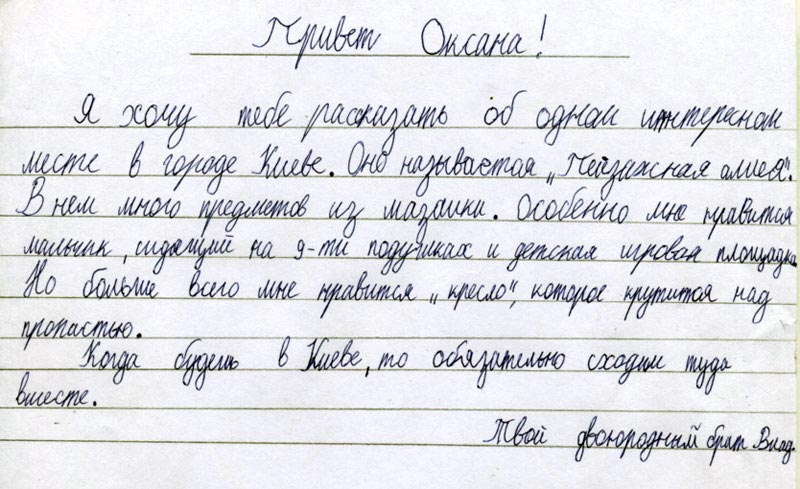 Привет Оксана!
Я хочу тебе рассказать об одном интересном
месте в городе Киеве. Оно называется „Пейзажная алея".
В нем много предметов из мазаики. Особенно мне нравится
мальчик, сидящий на 9-ти подушках и детская игровая площадка.
Но больше всего мне нравится „кресло", которое крутится над
пропастью.
Когда будешь в Киеве, то обязательно сходим туда
вместе.
Твой двоюродный брат Влад.